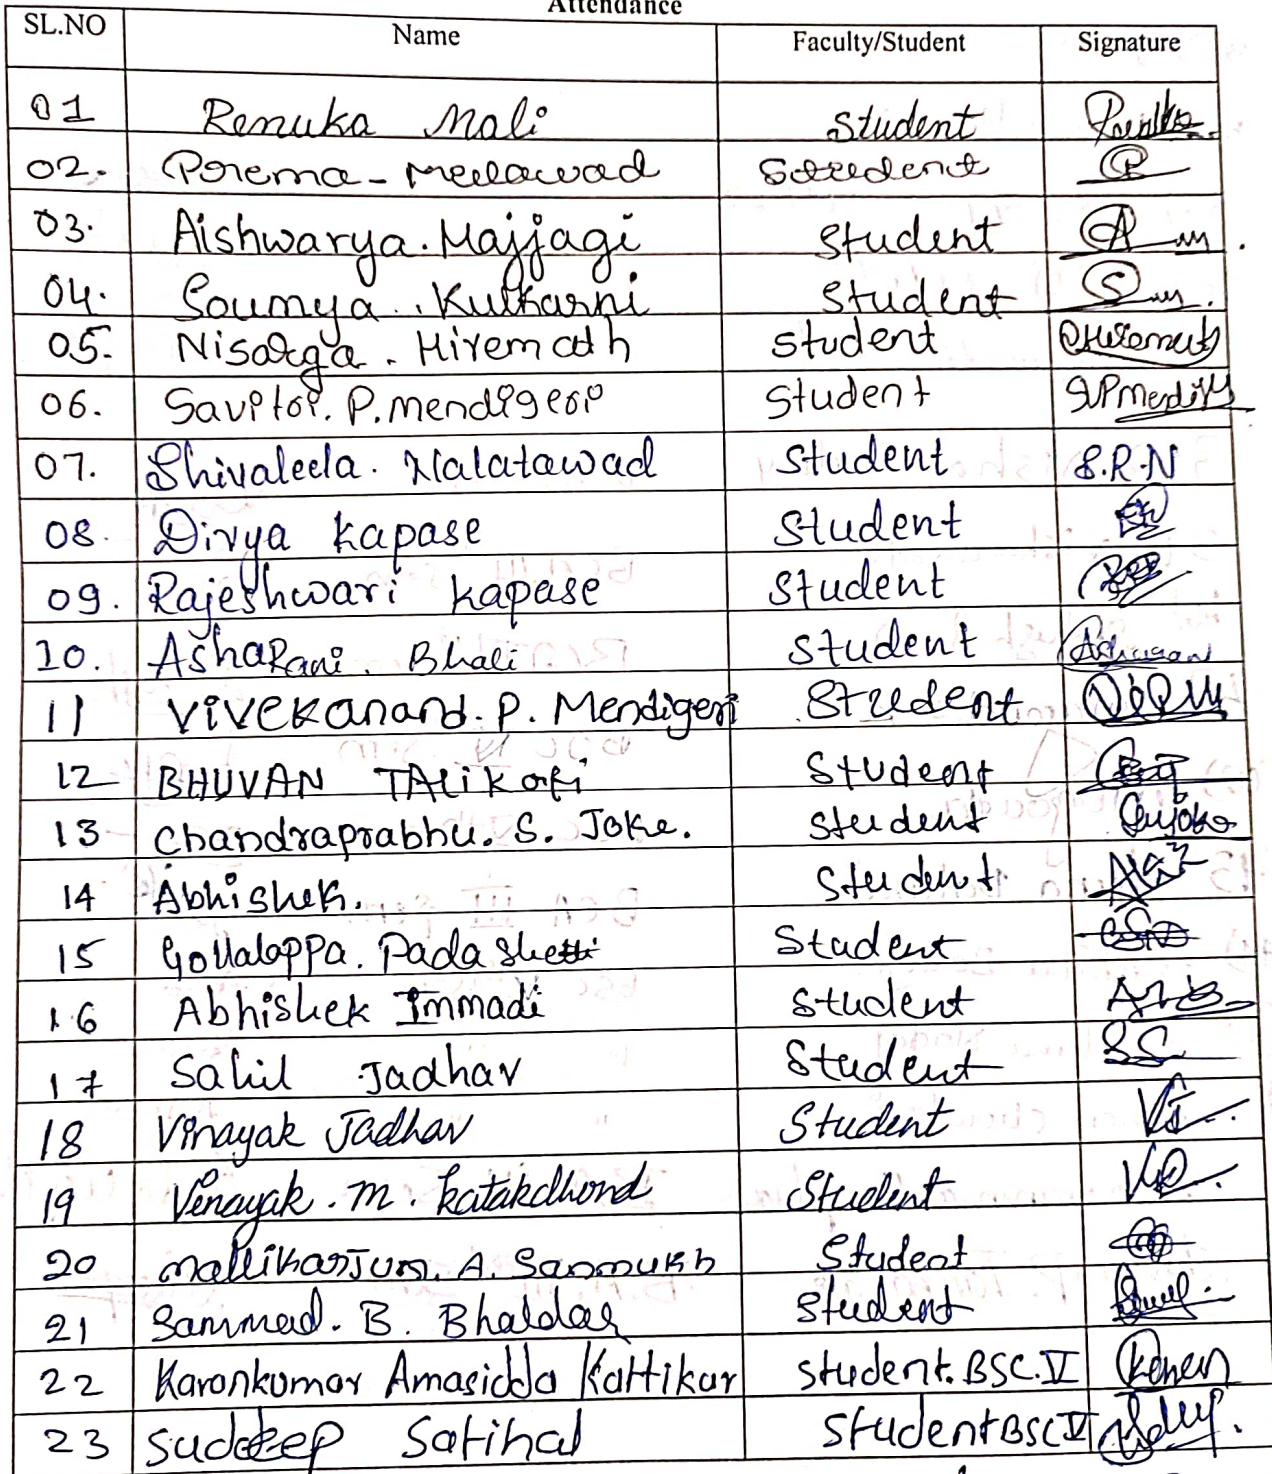 Attendance
SL.NO Name Faculty/Student Signature
01 Renuka Mali Student
02. Prema - Meelawad Student
03. Aishwarya. Majjagi Student
04. Soumya. Kulkarni Student
05. Nisarga. Hiremath Student
06. Savitri. P. mendigeri Student
07. Shivaleela. Nalatawad Student S.R.N
08. Divya kapase Student
09. Rajeshwari kapase Student
10. AshaRani. Bhali Student
11 Vivekanand. P. Mendigeri Student
12 BHUVAN TALikoti Student
13 Chandraprabhu. S. Joke. Student
14 Abhishek. Student
15 Gollalappa. Padashetti Student
16 Abhishek Immadi Student
17 Sahil Jadhav Student
18 Vinayak Jadhav Student
19 Vinayak. m. katakdhond Student
20 mallikarJun. A. Sanmukh Student
21 Sammed. B. Bhaldar Student
22 Karankumar Amasidda Kattikar student. BSC. V
23 sudeep Satihal student BSC V